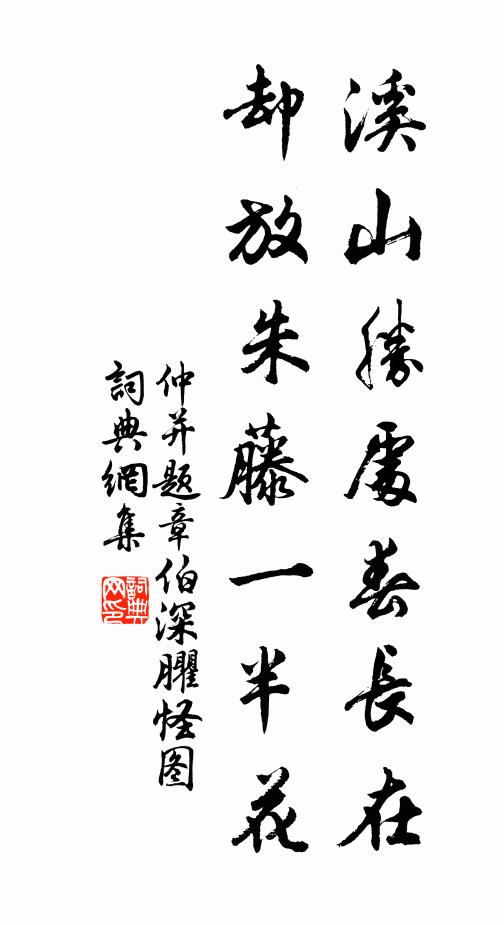 溪山勝處春長在
却放朱藤一半花
仲并题章伯深臞怪图
詞典網集
詞典网印